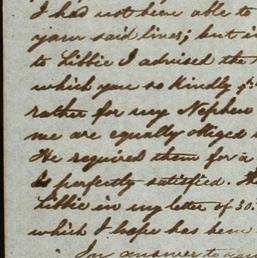 I had not been able to
your said lines; but i
to Libbie I advised the
which you so kindly
rather for my Nephew
me are equally obliged
He required them for a
is perfectly satisfied. Th
Libbie in my letter of 30.
which I hope has been
In answer to